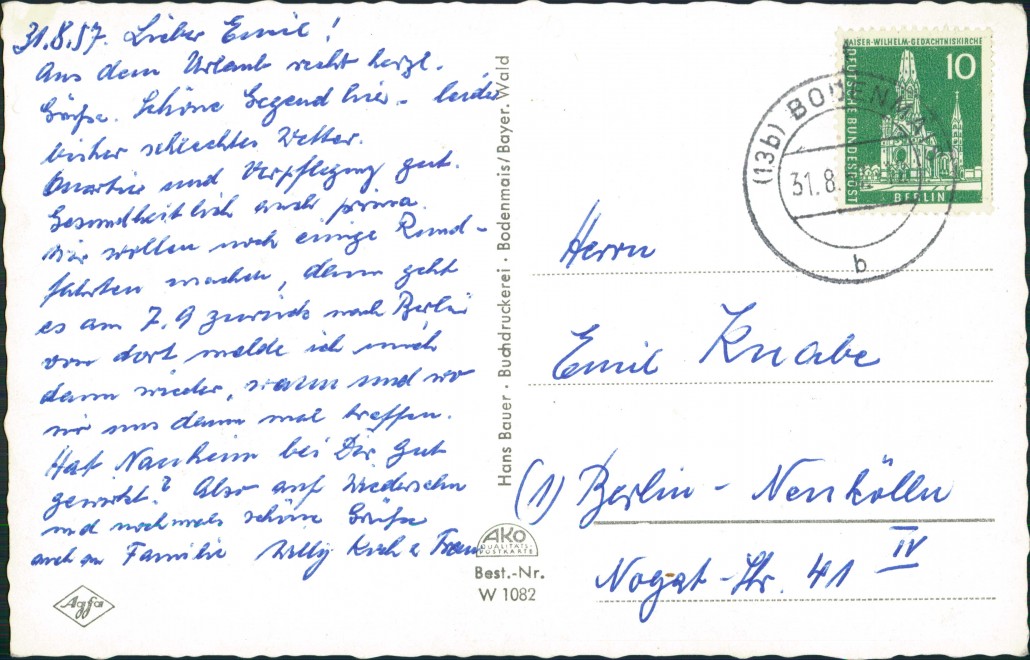 31.8.57. Lieber Emil!
Aus dem Urlaub recht herzl.
Grüße. Schöne Gegend hier - leider
bisher schlechtes Wetter.
Quartier und Verpflegung gut.
Gesundheitlich auch prima.
Wir wollen noch einige Rund-
fahrten machen, dann geht
es am 7.9 zurück nach Berlin
von dort melde ich mich
dann wieder, wann und wo
wir uns dann mal treffen.
Hat Nauheim bei Dir gut
gewirkt? Also auf Wiedersehn
und nochmals schöne Grüße
auch an Familie Willy Koch u Frau
Agfa
Hans Bauer · Buchdruckerei · Bodenmais/Bayer. Wald
AKO
QUALITÄTS-
POSTKARTE
Best.-Nr.
W 1082
KAISER-WILHELM-GEDÄCHTNISKIRCHE
10
DEUTSCHE BUNDESPOST
BERLIN
(13b) BODENMAIS
31.8.
b
Herrn
Emil Knabe
(1) Berlin - Neukölln
IV
Nogat-Str. 41